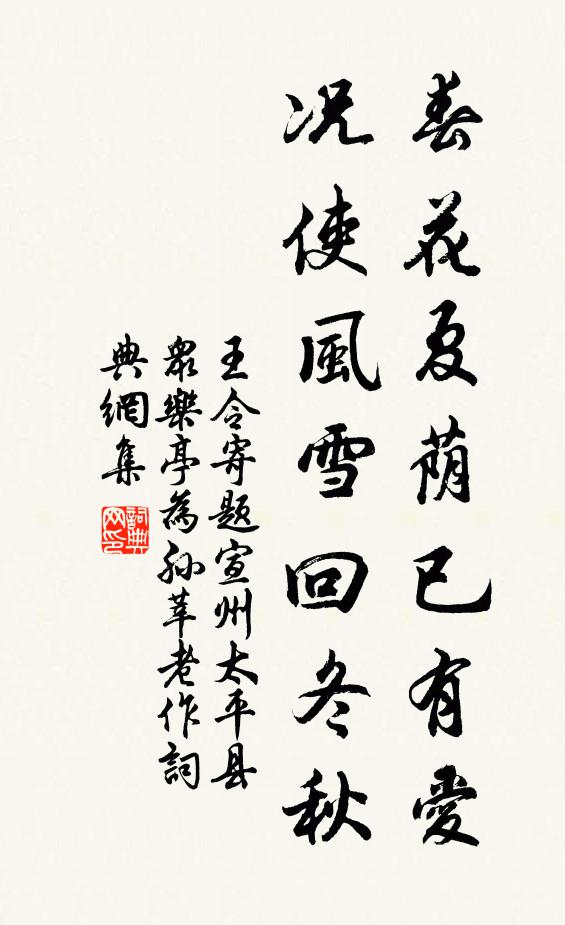 春花夏荫已有愛
况使風雪回冬秋
王令寄题宣州太平县
眾樂亭為孙莘老作詞
典網集
詞典网印